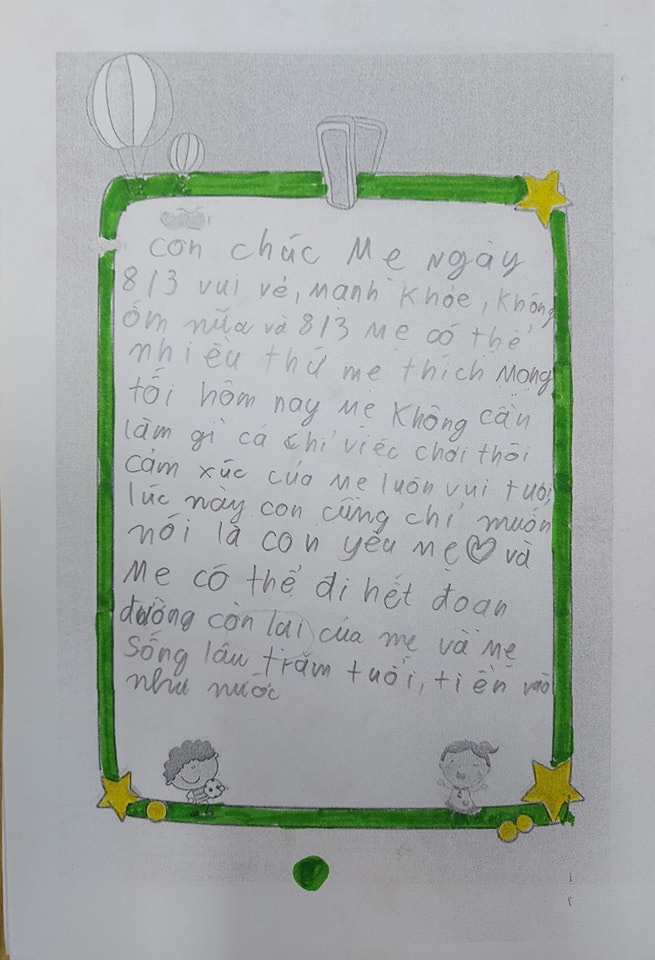 con chúc Mẹ ngày
8/3 vui vẻ, mạnh khỏe, không
ốm nữa và 8/3 mẹ có thể
nhiều thứ mẹ thích Mong
tối hôm nay mẹ không cần
làm gì cả chỉ việc chơi thôi
cảm xúc của mẹ luôn vui tươi
lúc này con cũng chỉ muốn
nói là con yêu mẹ♡ và
Mẹ có thể đi hết đoạn
đường còn lại của mẹ và mẹ
Sống lâu trăm tuổi, tiền vào
như nước